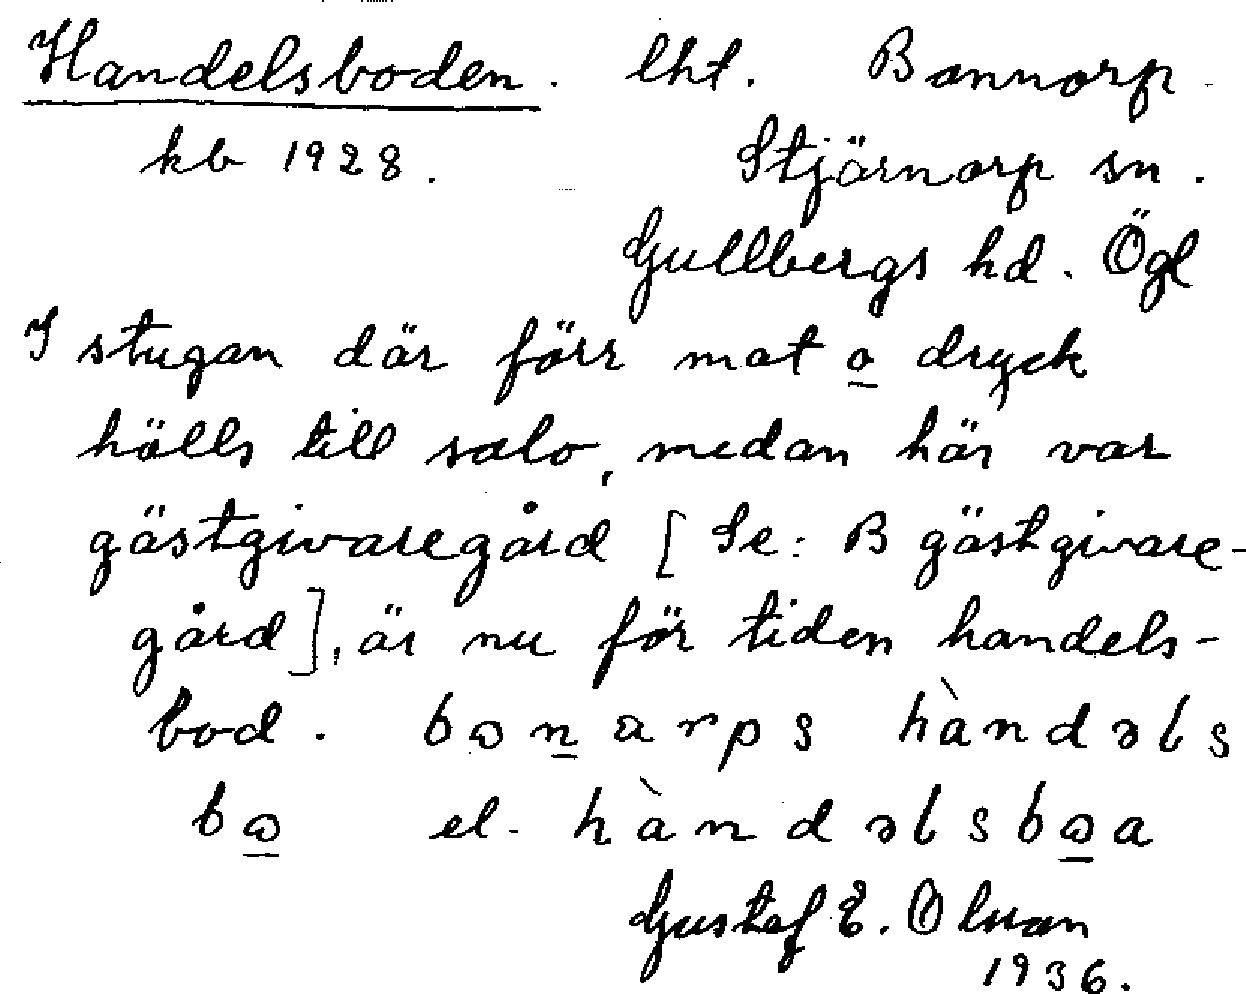 Handelsboden. lht. Bonnorp
kb 1928. Stjärnorp sn.
Gullbergs hd. Ögl
I stugan där förr mat o dryck
hölls till salo, medan här var
gästgivaregård [Se: B gästgivare-
gård], är nu för tiden handels-
bod. bɷnarps hàndəls
bɷ el. hàndəlsbɷa
Gustef E. Olsson
1936.